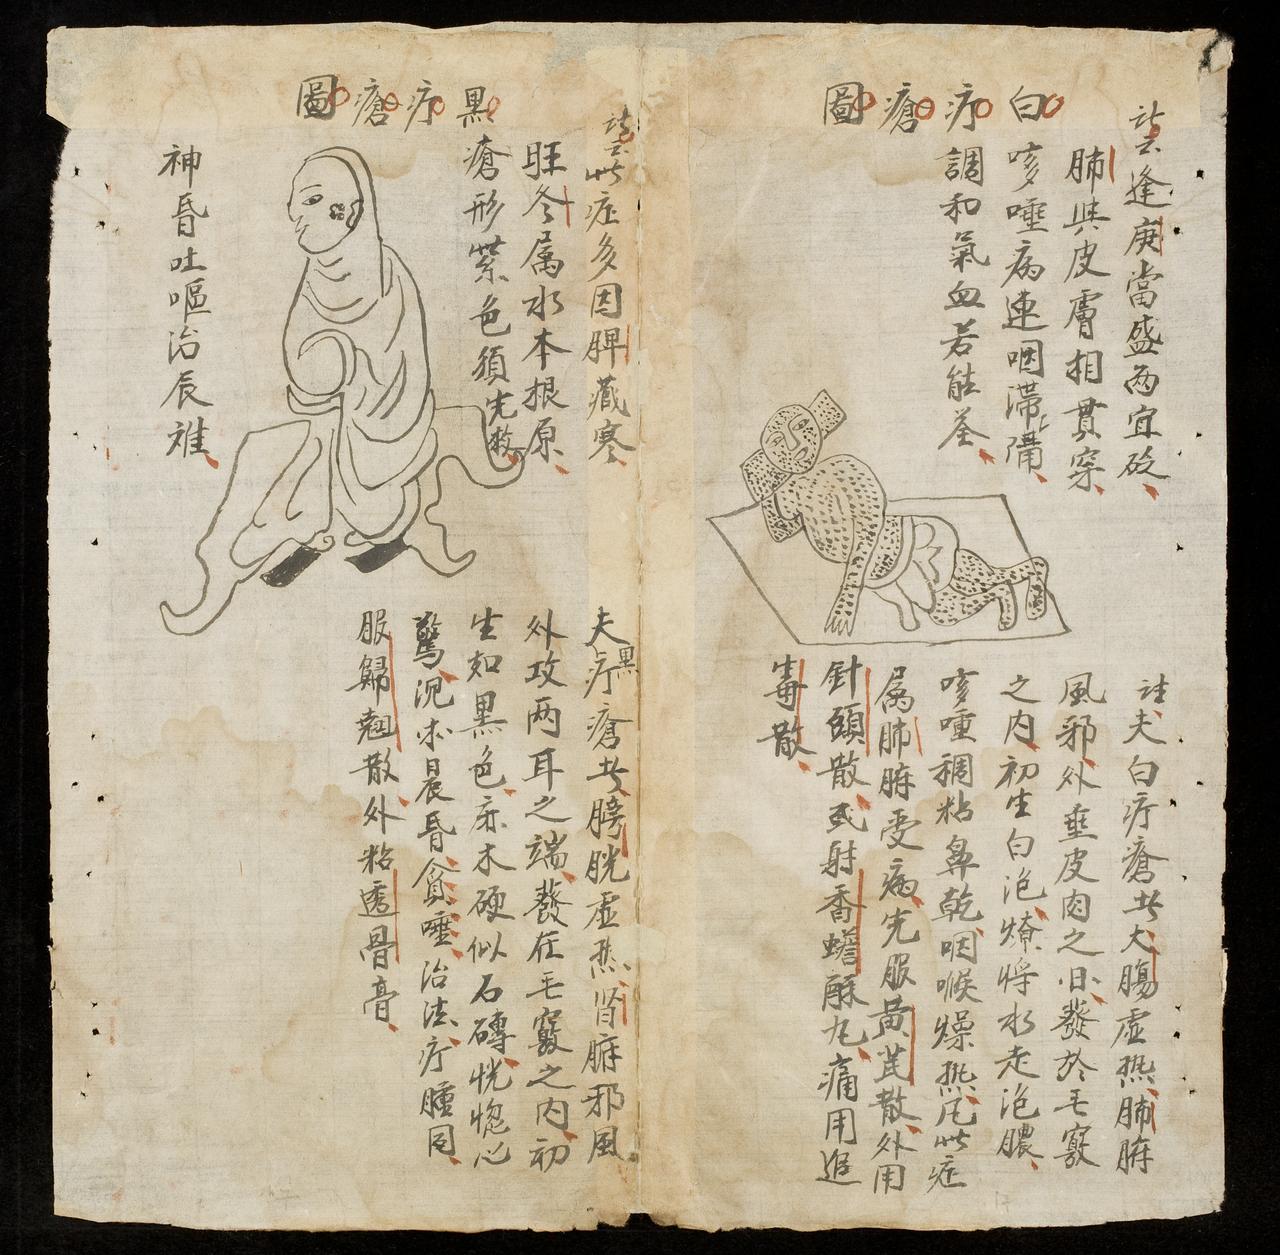 白疔瘡圖
詩云逢庚當盛两宜砭
肺與皮膚相貫穿
咳唾病連咽滯膈
調和氣血若能荃
註夫白疔瘡者大腸虛热肺腑
風邪外乘皮肉之间發於毛竅
之内初生白泡燎将水走泡膿
咳唾稠粘鼻乾咽喉燥热凡此症
属肺腑受病先服黄芪散外用
針頭散或射香蟾酥丸痛用追
毒散
黑疔瘡圖
詩云此症多因脾藏寒
旺冬属水本根原
瘡形紫色須先救
神昏吐嘔治辰难
夫黑疔瘡者膀胱虛热肾腑邪風
外攻两耳之端發在毛竅之内初
生如黑色麻木硬似石磚恍惚心
驚況未晨昏貪唾治法疔腫同
服歸翹散外粘透骨膏